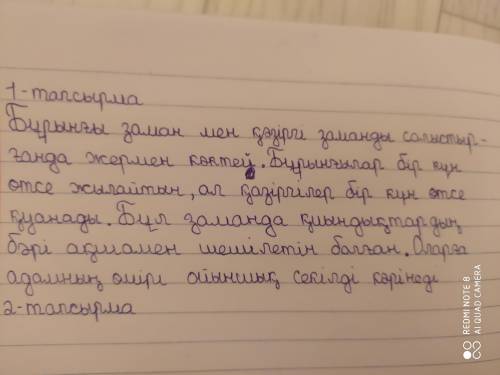 1-тапсырма
Бұрынғы заман мен қазіргі заманды салыстыр-
ғанда жермен көктей. Бұрынғылар бір күн
өтсе жылайтын, ал қазіргілер бір күн өтсе
қуанады. Бұл заманда қиындықтардың
бәрі ақшамен шешілетін болған. Оларға
адамның өмірі ойыншық секілді көрінеді
2-тапсырма
REDMI NOTE 8
AI QUAD CAMERA